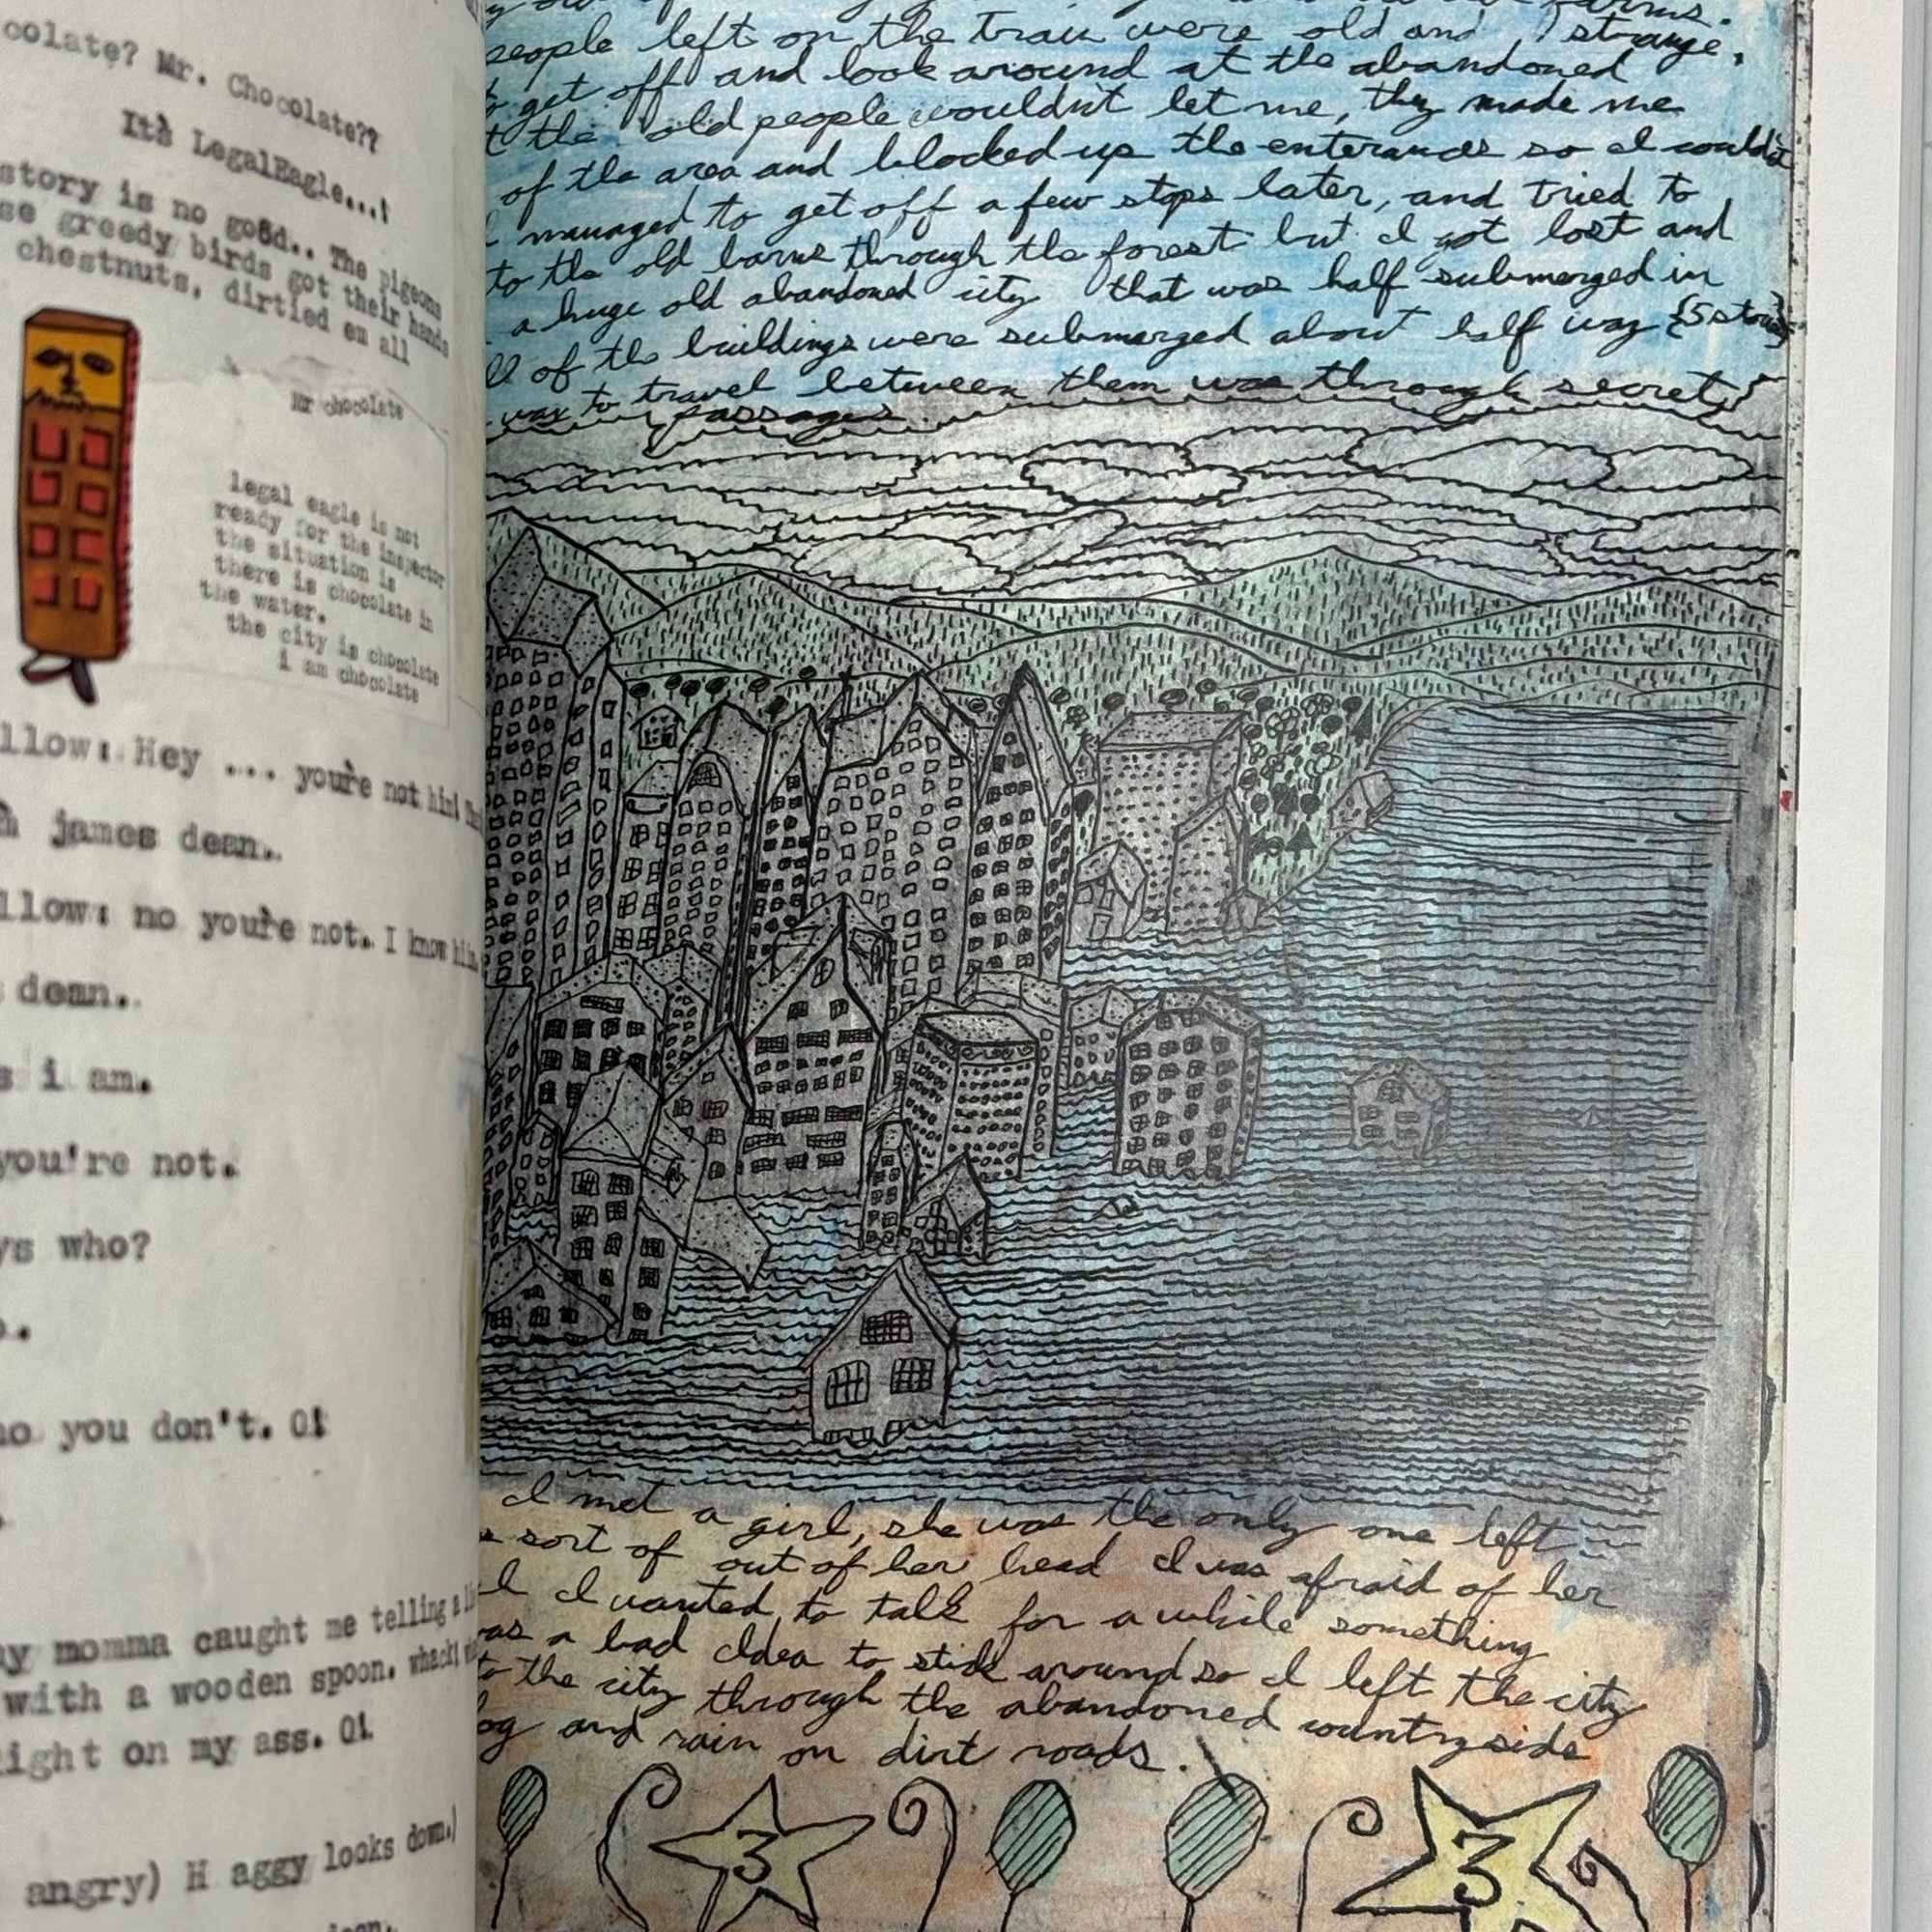 colate? Mr. Chocolate??
Its LegalEagle...!
story is no go8d.. The pigeons
se greedy birds got their hands
chestnuts, dirtied em all
Mr chocolate
legal eagle is not
ready for the inspector
the situation is
there is chocolate in
the water.
the city is chocolate
i am chocolate
llow: Hey ... you're not him!
james dean..
llow: no you're not. I know him.
dean..
s i am.
you're not.
ys who?
o.
no you don't. O!
my momma caught me telling a
with a wooden spoon. whack!
right on my ass. O!
angry) H aggy looks down.)
dean.
people left on the train were old and strange.
to get off and look around at the abandoned
t the old people wouldn't let me, they made me
of the area and blocked up the enterances so I couldn't
I managed to get off a few stops later, and tried to
to the old barns through the forest but I got lost and
a huge old abandoned city that was half submerged in
ll of the buildings were submerged about half way {5 stories}
way to travel between them was through secret
passages
I met a girl, she was the only one left
sort of out of her head I was afraid of her
I wanted to talk for a while something
was a bad Idea to stick around so I left the city
to the city through the abandoned countryside
og and rain on dirt roads.
3
3